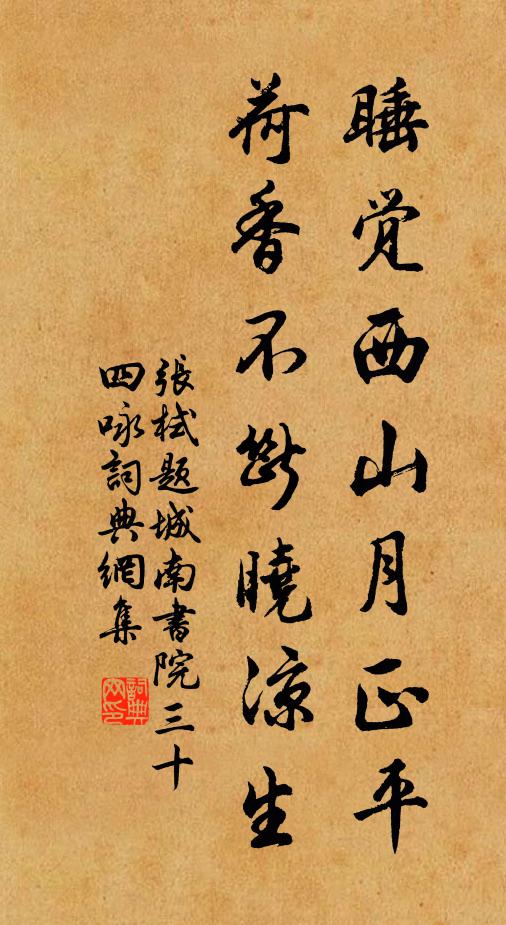 睡觉西山月正平
荷香不断曉凉生
張栻题城南書院三十
四咏詞典網集
詞典网印